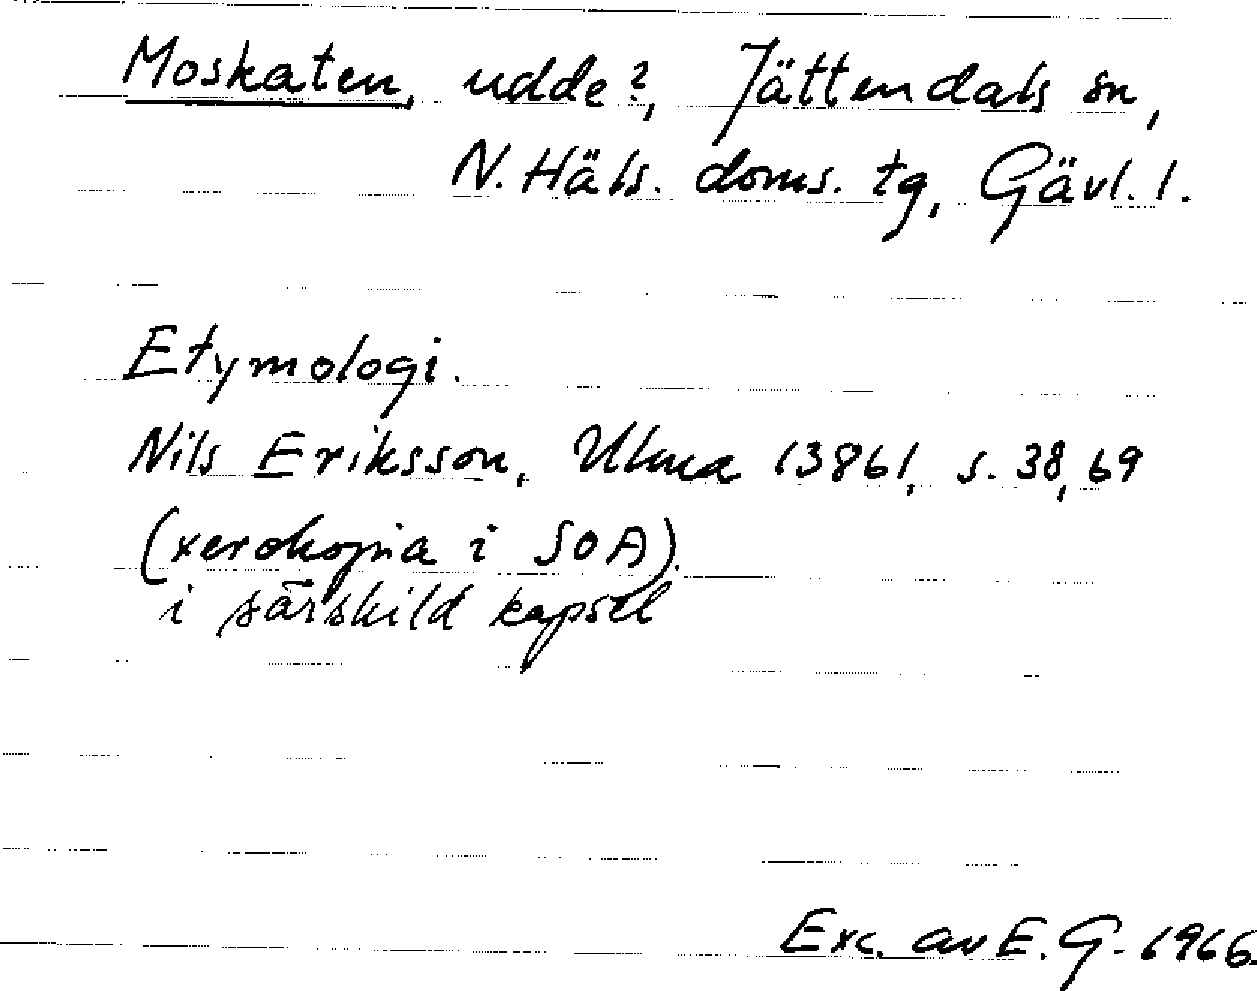 Moskaten, udde?, Jättendals sn,
N. Häls. doms. tg, Gävl. l.
Etymologi.
Nils Eriksson, Ulma 13861, s. 38, 69
(xerokopia i SOA).
i särskild kapsel
Exc. av E. G. 1966.